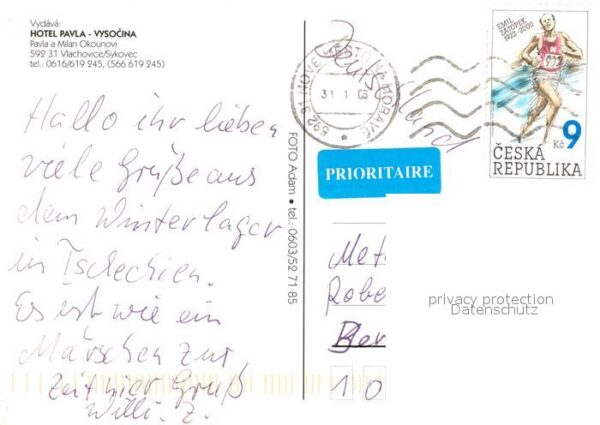 Vydává:
HOTEL PAVLA - VYSOČINA
Pavla a Milan Okounovi
592 31 Vlachovice/Sykovec
tel.: 0616/619 245, (566 619 245)
Hallo ihr lieben
viele Grüße aus
dem Winterlager
in Tschechien.
Es ist wie ein
Märchen zur
Zeit hier Gruß
Willi. Z.
FOTO Adam • tel.: 0603/52 71 85
Deutschland
592 31 NOVÉ MĚSTO NA MORAVĚ
31 1 05
EMIL
ZÁTOPEK
1922-2000
9 Kč
ČESKÁ
REPUBLIKA
PRIORITAIRE
Met
Robe
Ber
10
privacy protection
Datenschutz